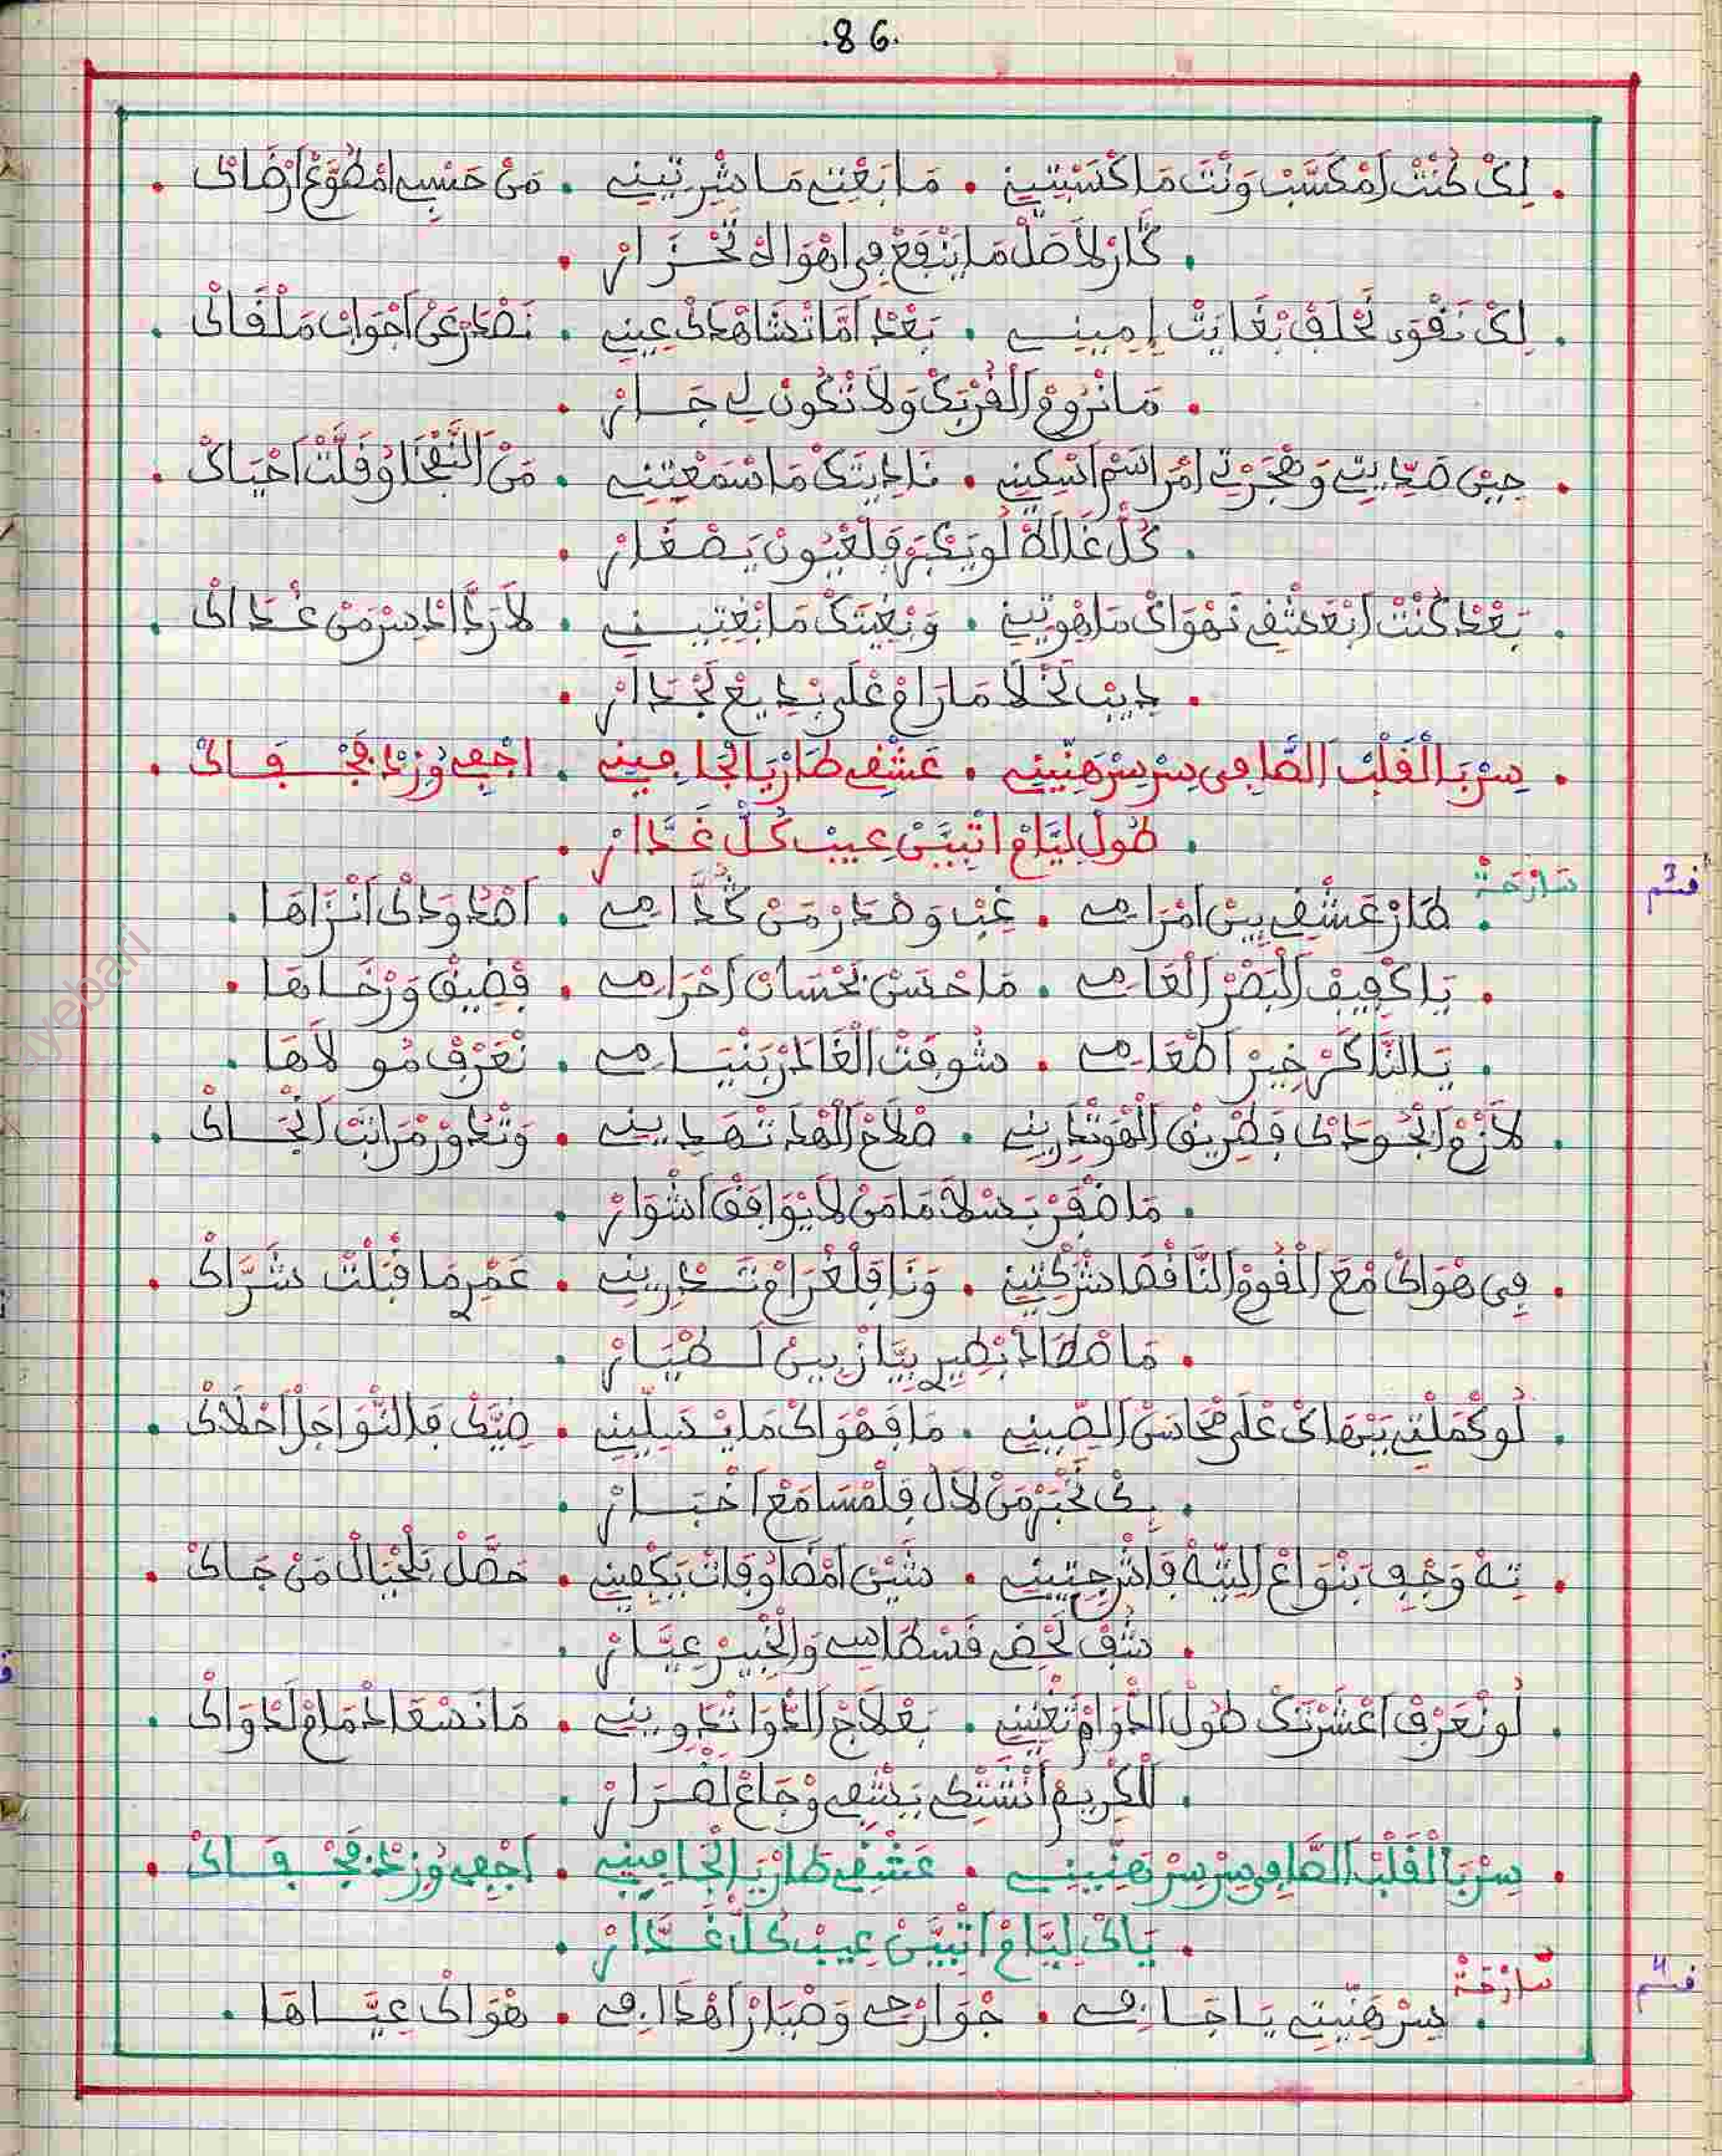 .86.
. لِكْ كُنْتْ اَمْكَسَّبْ وَنْتَ مَا كْسَبْتِينِي . مَا بَغْتِ مَا شْرِيتِينِي . مَنْ حَسْبِ امْطَوَّعْ اَرْضَاكْ .
. كَارْ لاَصَلْ مَا يَنْفَعْ فِي اهْوَاكْ تَحْزَارْ .
. لِكْ نَقْوَى نَحْلَفْ بْغَايَتْ اِمِينِي . بَعْدْ اَمَّا تْشَاهْدَكْ عِينِي . نَصْدَرْ عَنْ اَجْوَابْ مَلْقَاكْ .
. مَا نْرُومْ اَلْقُرْبَكْ وَلاَ نْكُونْ لِي جَارْ .
. حِينْ صَدِّيتِ وَهْجَرْتِ امْرَاسَمْ اسْكِينِي . نَادِيتَكْ مَا سْمَعْتِينِي . مَنْ اَلنَّفْخَا وُقَلَّتْ اَحْيَاكْ .
. كُلّْ غَالَطْ لُو يَكْبَرْ فِلْعْيُونْ يَصْغَارْ .
. بَعْدْ كُنْتْ اَبْعَشْقِي نَهْوَاكْ مَا هْوِيتِينِي . وَبْغِيتَكْ مَا بْغِيتِينِي . لاَ رَدَّادْ سِرْ مَنْ غْدَاكْ .
. دِيبْ لَخْلاَ مَا رَامْ عْلَى بْدِيعْ لَجْدَارْ .
. سِرْ بَالْقَلْبْ الصَّافِي سِرْ سِرْ هَنِّينِي . عَشْقِي طَارْ يَا لْجَافِينِي . اجْفِي وُزِدْ فَجْفَاكْ .
. طُولْ لِيَّامْ اتْبَيَّنْ عِيبْ كُلّْ غَدَّارْ .
قسم 3
سَارْحَةْ
. طَارْ عَشْقِي بِينْ اَمْرَامِي . غِبْ وَهْدَرْ مَنْ كُدَّامِي . اَهْدْ وَدَاكْ اَنْزَاهَا .
. يَا كْفِيفْ اَلْبَصْرْ اَلْعَامِي . مَا حْسَنْ نَحْسَابْ اَحْرَامِي . فْضِيقْ وَرْخَاهَا .
. يَالنَّاكَرْ خِيرْ اَطْعَامِي . شُوفْتْ الْغَادَرْ بَنْيَامِي . نَعْرَفْ مُولاَهَا .
. لاَزَمْ اَلْجُودَكْ فَطْرِيقْ اَلْهَوْ تْدَرِينِي . صْلاَحْ اَلْهْدَ تَهْدِينِي . وَتْدُورْ مْرَاتَبْ اَلْجَاكْ .
. مَا ضْفَرْ بَسْلاَمَا مَنْ لاَ يْوَافَقْ اَشْوَارْ .
. فِي هْوَاكْ مْعَ اَلْقُومْ النَّافْقَا شْرَكْتِينِي . وَنَا فِلْغْرَامْ تَنْدِرِينِي . عَمْرِ مَا قْبَلْتْ شَرَّاكْ .
. مَا صْطَادْ بْطِيرِ بِيَّازْ بِينْ اَلطْيَارْ .
. لُو كْمَلْتِي بَبْهَاكْ عْلَى مْحَاسَنْ اَلصِّينِي . مَا فَهْوَاكْ مَا يْسَلِّينِي . ضِيَّكْ فَالنْوَاجَلْ اَحْلاَكْ .
. بِكْ نَخْبَرْ مَنْ لاَلْ فِلْمْسَامَعْ اَخْبَارْ .
. تِهْ وَجْفِ بَنْوَاعْ اَلتِّيهْ فَاشْ جِيتِينِي . شَيْنْ اَمْضَا وُفَاتْ يَكْفِينِي . حَصَّلْ بَلْخْيَالْ مَنْ جَاكْ .
. شُفْ لَحْضِي قَسْطَاسِي وَالْخْبِيرْ عِيَّارْ .
. لُو نْعَرَفْ اَعْشَرْتَكْ طُولْ اَلدّْوَامْ تْغْنِينِي . بَعْلاَجْ اَلدّْوَا تْدَوِينِي . مَا نَسْعَا دْمَامْ لَدْوَاكْ .
. اَلْكْرِيمْ اَنْشْتْكِي يَشْفِي وْجَاعْ لَضْرَارْ .
. سِرْ بَالْقَلْبْ اَلصَّافِي سِرْ سِرْ هَنِّينِي . عَشْقِي طَارْ يَا لْجَافِينِي . اَجْفِي وُزِدْ فَجْفَاكْ .
. يَاكْ لِيَّامْ اَتْبَيَّنْ عِيبْ كُلّْ غَدَّارْ .
قسم 4
سَارْحَةْ
. سِرْ هَنِّيتِي يَا جَافِي . جْوَارْحِي وَصْبَارْ اَهْدَافِي . هْوَاكْ عِيَّاهَا .